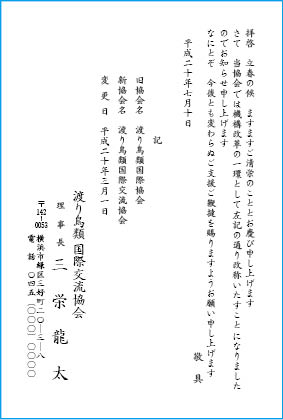 拝啓　立春の候　ますますご清栄のこととお慶び申し上げます
さて　当協会では機構改革の一環として左記の通り改称いたすことになりました
のでお知らせ申し上げます
なにとぞ　今後とも変わらぬご支援ご鞭撻を賜りますようお願い申し上げます
敬具
平成二十年七月十日
記
旧協会名　渡り鳥類国際協会
新協会名　渡り鳥類国際交流協会
変更日　平成二十年三月一日
渡り鳥類国際交流協会
理事長　三栄龍太
〒142-0053　横浜市緑区三好町二〇-三-八
電話　〇四五（〇〇〇）〇〇〇〇